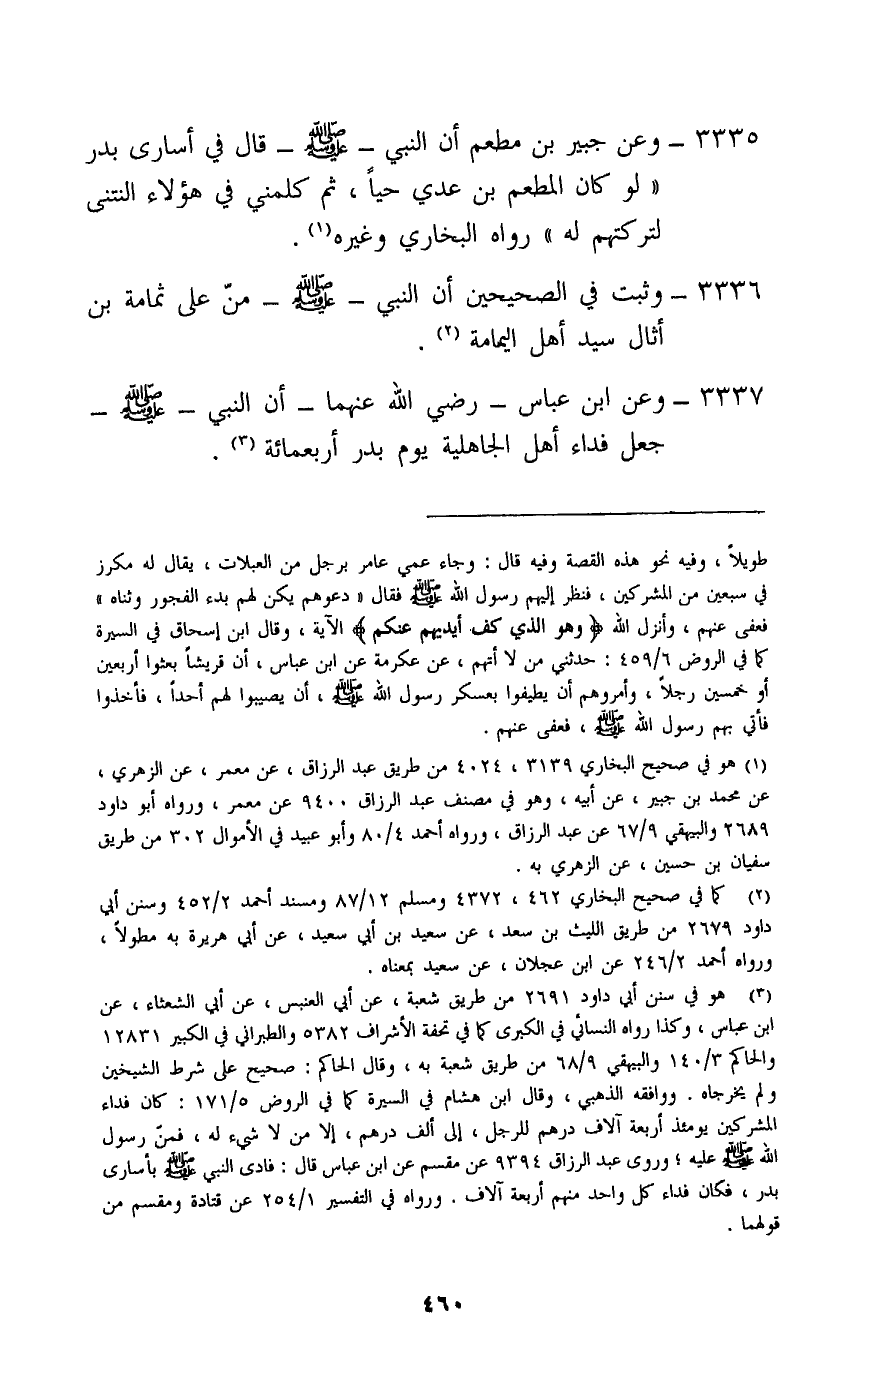 ٣٣٣٥ – وعن جبير بن مطعم أن النبي – ﷺ – قال في أسارى بدر
« لو كان المطعم بن عدي حياً ، ثم كلمني في هؤلاء النتنى
لتركتهم له » رواه البخاري وغيره(١) .
٣٣٣٦ – وثبت في الصحيحين أن النبي – ﷺ – منّ على ثمامة بن
أثال سيد أهل اليمامة (٢) .
٣٣٣٧ – وعن ابن عباس – رضي الله عنهما – أن النبي – ﷺ –
جعل فداء أهل الجاهلية يوم بدر أربعمائة (٣) .
طويلاً ، وفيه نحو هذه القصة وفيه قال : وجاء عمي عامر برجل من العبلات ، يقال له مكرز
في سبعين من المشركين ، فنظر إليهم رسول الله ﷺ فقال « دعوهم يكن لهم بدء الفجور وثناه »
فعفى عنهم ، وأنزل الله ﴿ وهو الذي كف أيديهم عنكم ﴾ الآية ، وقال ابن إسحاق في السيرة
كما في الروض ٤٥٩/٦ : حدثني من لا أتهم ، عن عكرمة عن ابن عباس ، أن قريشاً بعثوا أربعين
أو خمسين رجلاً ، وأمروهم أن يطيفوا بعسكر رسول الله ﷺ ، أن يصيبوا لهم أحداً ، فأخذوا
فأتي بهم رسول الله ﷺ ، فعفى عنهم .
(١) هو في صحيح البخاري ٣١٣٩ ، ٤٠٢٤ من طريق عبد الرزاق ، عن معمر ، عن الزهري ،
عن محمد بن جبير ، عن أبيه ، وهو في مصنف عبد الرزاق ٩٤٠٠ عن معمر ، ورواه أبو داود
٢٦٨٩ والبيهقي ٦٧/٩ عن عبد الرزاق ، ورواه أحمد ٨٠/٤ وأبو عبيد في الأموال ٣٠٢ من طريق
سفيان بن حسين ، عن الزهري به .
(٢) كما في صحيح البخاري ٤٦٢ ، ٤٣٧٢ ومسلم ٨٧/١٢ ومسند أحمد ٤٥٢/٢ وسنن أبي
داود ٢٦٧٩ من طريق الليث بن سعد ، عن سعيد بن أبي سعيد ، عن أبي هريرة به مطولاً ،
ورواه أحمد ٢٤٦/٢ عن ابن عجلان ، عن سعيد بمعناه .
(٣) هو في سنن أبي داود ٢٦٩١ من طريق شعبة ، عن أبي العنبس ، عن أبي الشعثاء ، عن
ابن عباس ، وكذا رواه النسائي في الكبرى كما في تحفة الأشراف ٥٣٨٢ والطبراني في الكبير ١٢٨٣١
والحاكم ١٤٠/٣ والبيهقي ٦٨/٩ من طريق شعبة به ، وقال الحاكم : صحيح على شرط الشيخين
ولم يخرجاه . ووافقه الذهبي ، وقال ابن هشام في السيرة كما في الروض ١٧١/٥ : كان فداء
المشركين يومئذ أربعة آلاف درهم للرجل ، إلى ألف درهم ، إلا من لا شيء له ، فمنّ رسول
الله ﷺ عليه ؛ وروى عبد الرزاق ٩٣٩٤ عن مقسم عن ابن عباس قال : فادى النبي ﷺ بأسارى
بدر ، فكان فداء كل واحد منهم أربعة آلاف . ورواه في التفسير ٢٥٤/١ عن قتادة ومقسم من
قولهما .
٤٦٠